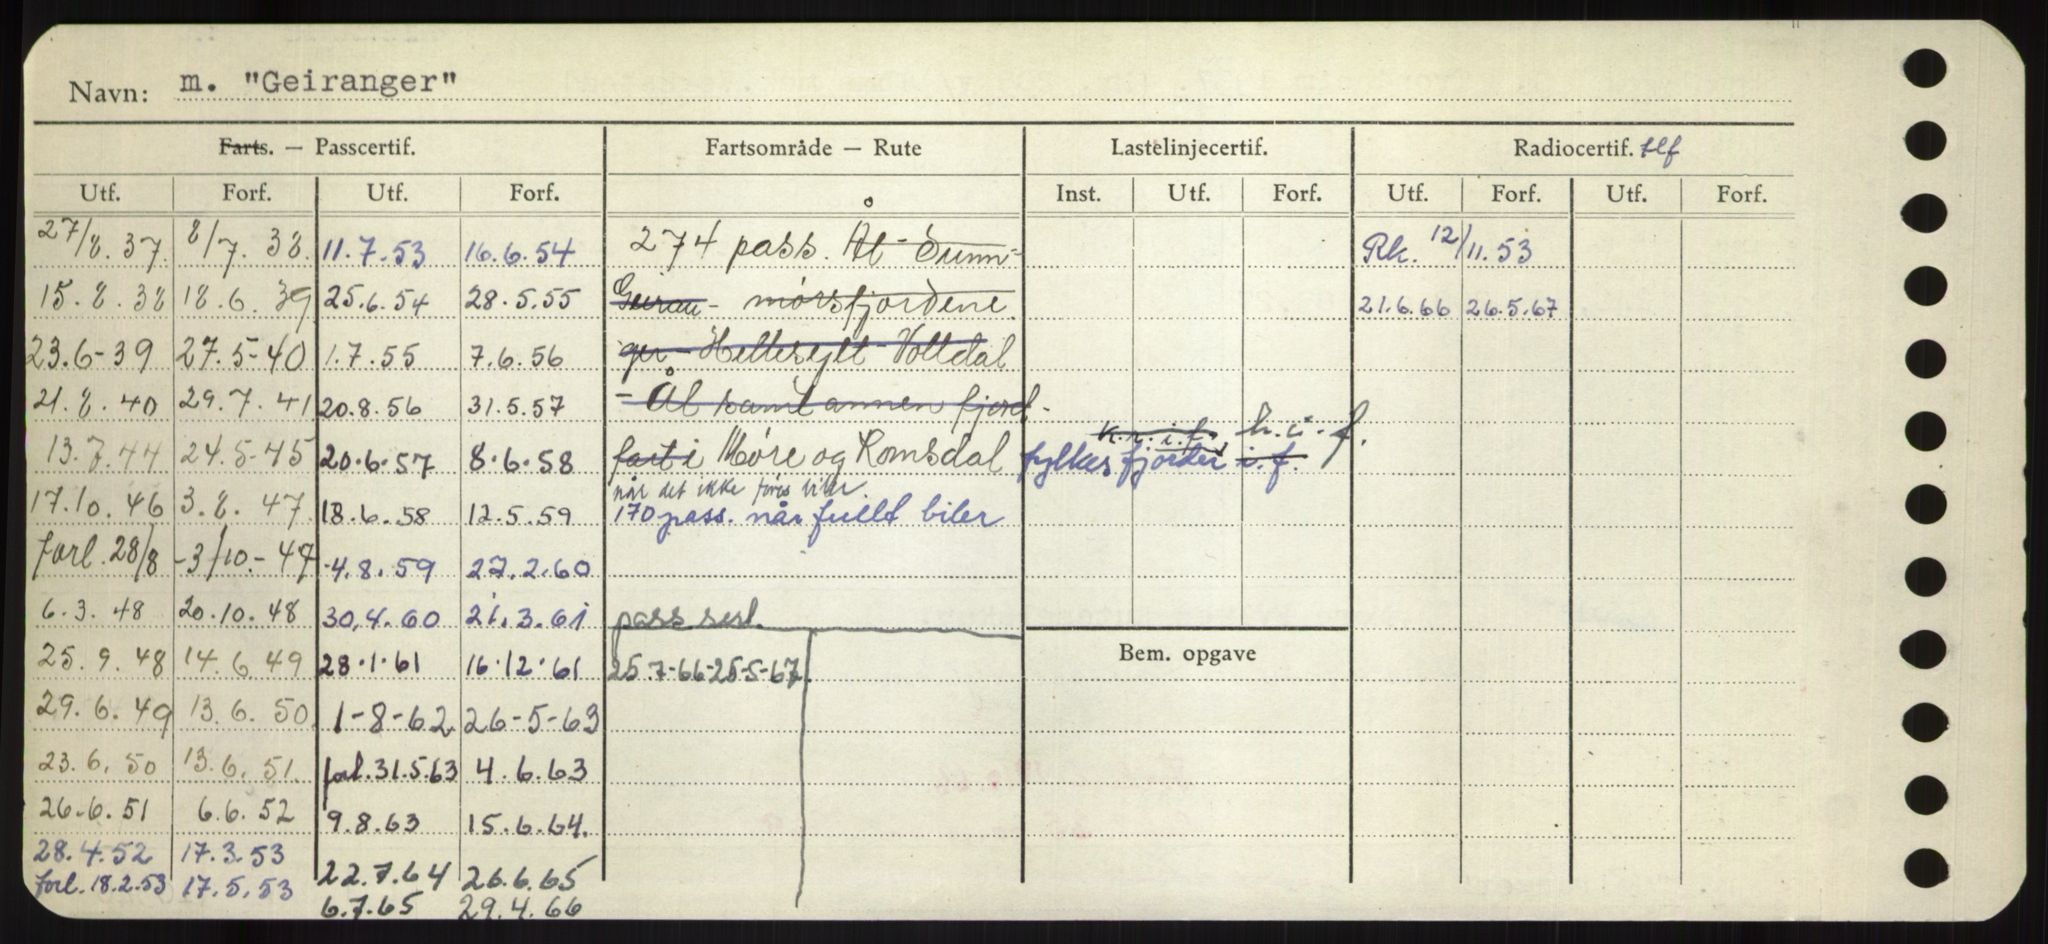 Navn: m. "Geiranger"
Farts. — Passcertif. Fartsområde — Rute Lastelinjecertif. Radiocertif. tlf
Utf. Forf. Utf. Forf. Inst. Utf. Forf. Utf. Forf. Utf. Forf.
27/8.37. 8/7.38. 11.7.53 16.6.54 274 pass. Ål - Sunn- Rk. 12/11.53
15.8.38 18.6.39 25.6.54 28.5.55 Geiran - mørsfjordene. 21.6.66 26.5.67
23.6-39 27.5-40 1.7.55 7.6.56 ger - Hellesylt - Volldal
21.8.40 29.7.41 20.8.56 31.5.57 - Ål samt annen fjord-
k.r.i.f. h.i.f.
13.7.44 24.5-45 20.6.57 8.6.58 fart i Møre og Romsdal fylkes fjorder i.f.
når det ikke føres biler.
17.10.46 3.8.47. 18.6.58 12.5.59 170 pass. når fullt biler
forl. 28/8 -3/10.-47 4.8.59 27.2.60
6.3.48 20.10.48 30.4.60 21.3.61 pass sert.
25.9.48 14.6.49 28.1.61 16.12.61 25.7-66-25-5-67. Bem. opgave
29.6.49 13.6.50. 1-8-62 26-5-63
23.6.50 13.6.51. forl.31.5.63 4.6.63
26.6.51 6.6.52 9.8.63 15.6.64.
28.4.52 17.3.53
forl. 18.2.53 17.5.53 22.7.64 26.6.65
6.7.65 29.4.66